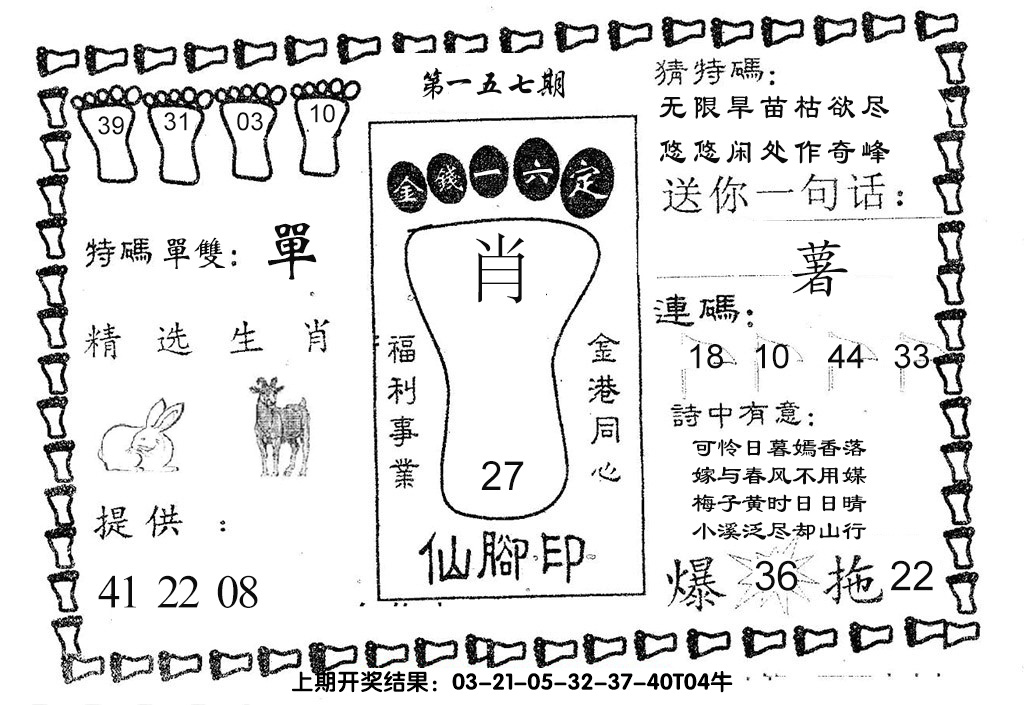 第一五七期
39 31 03 10
特碼單雙：單
精选生肖
提供：
41 22 08
金錢一六定
肖
福利事業
金港同心
27
仙腳印
猜特碼：
无限旱苗枯欲尽
悠悠闲处作奇峰
送你一句话：
薯
連碼：
18 10 44 33
詩中有意：
可怜日暮嫣香落
嫁与春风不用媒
梅子黄时日日晴
小溪泛尽却山行
爆 36 拖 22
上期开奖结果：03-21-05-32-37-40T04牛